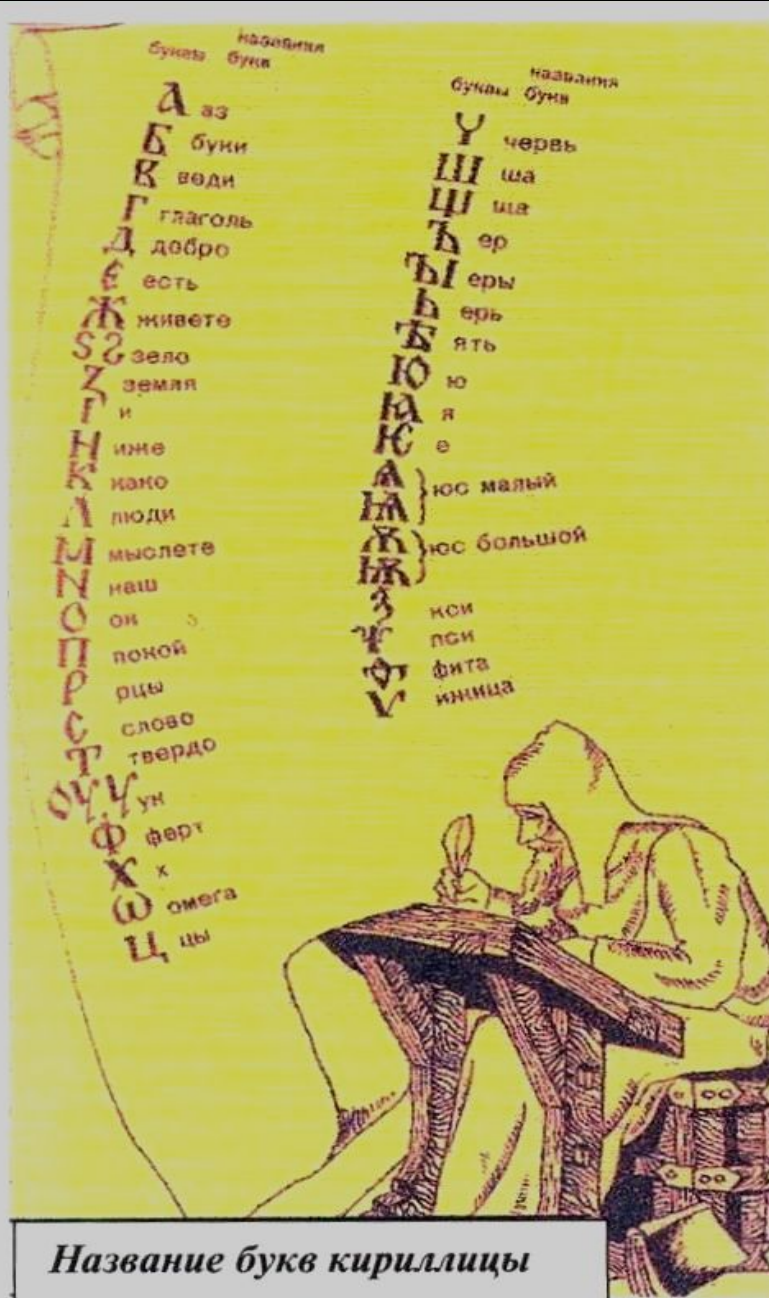 названия
буквы букв
А аз
Б буки
В веди
Г глаголь
Д добро
Є есть
Ж живете
Ѕ Ꙅ зело
З земля
І и
Н иже
К како
Л люди
М мыслете
N наш
О он
П покой
Р рцы
С слово
Т твердо
ОУ, У ук
Ф ферт
Х х
Ѡ омега
Ц цы
названия
буквы букв
Ч червь
Ш ша
Щ ща
Ъ ер
ЪІ еры
Ь ерь
Ѣ ять
Ю ю
Ꙗ я
Ѥ е
Ѧ
Ѩ } юс малый
Ѫ
Ѭ } юс большой
Ѯ кси
Ѱ пси
Ѳ фита
Ѵ ижица
Название букв кириллицы